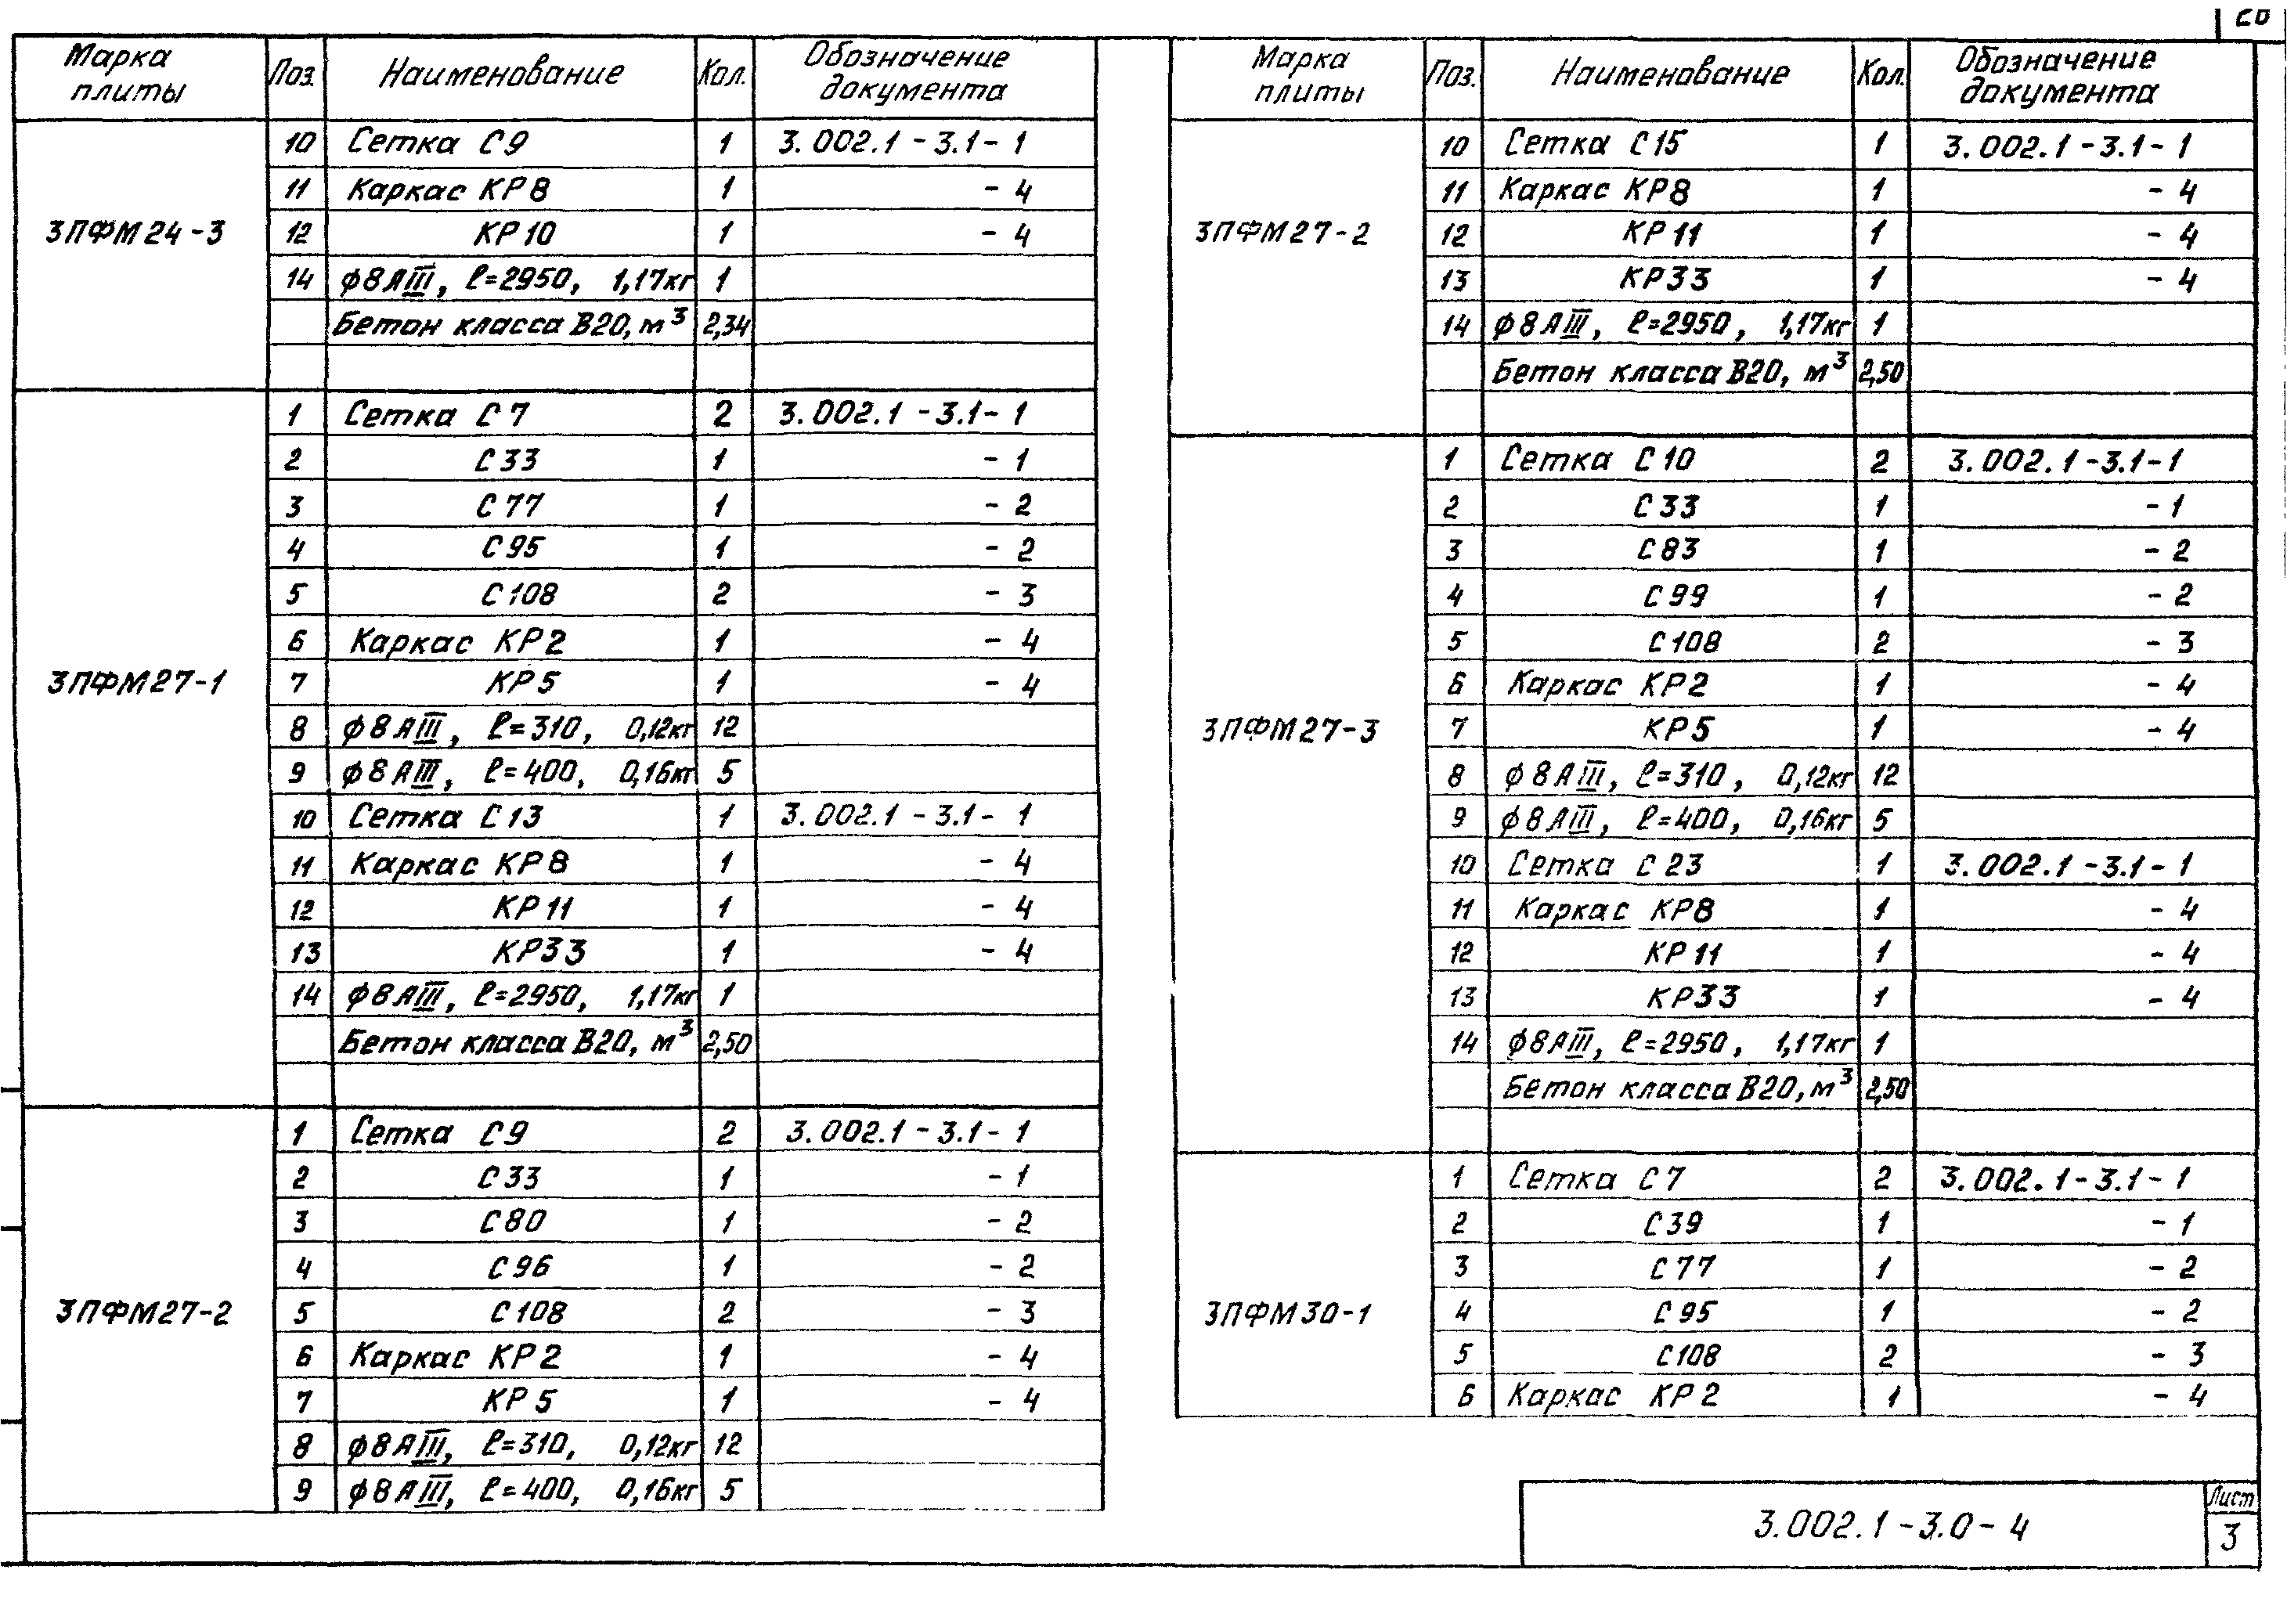 20
Марка плиты Поз. Наименование Кол. Обозначение документа
10 Сетка С9 1 3.002.1-3.1-1
11 Каркас КР8 1 -4
3ПФМ24-3 12 КР10 1 -4
14 ϕ8АIII, ℓ=2950, 1,17кг 1
Бетон класса В20, м³ 2,34
1 Сетка С7 2 3.002.1-3.1-1
2 С33 1 -1
3 С77 1 -2
4 С95 1 -2
5 С108 2 -3
6 Каркас КР2 1 -4
3ПФМ27-1 7 КР5 1 -4
8 ϕ8АIII, ℓ=310, 0,12кг 12
9 ϕ8АIII, ℓ=400, 0,16кг 5
10 Сетка С13 1 3.002.1-3.1-1
11 Каркас КР8 1 -4
12 КР11 1 -4
13 КР33 1 -4
14 ϕ8АIII, ℓ=2950, 1,17кг 1
Бетон класса В20, м³ 2,50
1 Сетка С9 2 3.002.1-3.1-1
2 С33 1 -1
3 С80 1 -2
4 С96 1 -2
3ПФМ27-2 5 С108 2 -3
6 Каркас КР2 1 -4
7 КР5 1 -4
8 ϕ8АIII, ℓ=310, 0,12кг 12
9 ϕ8АIII, ℓ=400, 0,16кг 5
Марка плиты Поз. Наименование Кол. Обозначение документа
10 Сетка С15 1 3.002.1-3.1-1
11 Каркас КР8 1 -4
3ПФМ27-2 12 КР11 1 -4
13 КР33 1 -4
14 ϕ8АIII, ℓ=2950, 1,17кг 1
Бетон класса В20, м³ 2,50
1 Сетка С10 2 3.002.1-3.1-1
2 С33 1 -1
3 С83 1 -2
4 С99 1 -2
5 С108 2 -3
6 Каркас КР2 1 -4
3ПФМ27-3 7 КР5 1 -4
8 ϕ8АIII, ℓ=310, 0,12кг 12
9 ϕ8АIII, ℓ=400, 0,16кг 5
10 Сетка С23 1 3.002.1-3.1-1
11 Каркас КР8 1 -4
12 КР11 1 -4
13 КР33 1 -4
14 ϕ8АIII, ℓ=2950, 1,17кг 1
Бетон класса В20, м³ 2,50
1 Сетка С7 2 3.002.1-3.1-1
2 С39 1 -1
3 С77 1 -2
3ПФМ30-1 4 С95 1 -2
5 С108 2 -3
6 Каркас КР2 1 -4
3.002.1-3.0-4
Лист
3